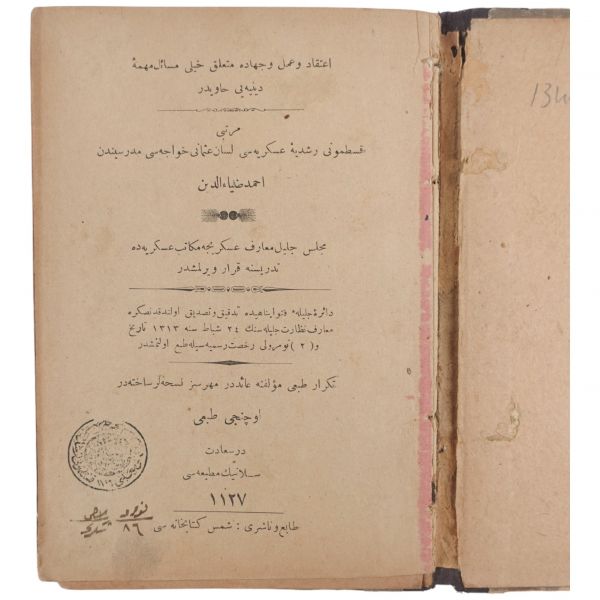 اعتقاد وعمل وجهاده متعلق خیلی مسائل مهمۀ
دینیه‌یی حاویدر
مرتبی
قسطمونی رشدیۀ عسکریه‌سی لسان عثمانی خواجه‌سی مدرسیندن
احمد ضیاءالدین
مجلس جلیل معارف عسکریجه مکاتب عسکریه‌ده
تدریسنه قرار ویرلمشدر
دائرۀ جلیلۀ فتوا پناهیده تدقیق و تصدیق اولندقدنصکره
معارف نظارت جلیله‌سنك ٢٤ شباط سنه ١٣١٣ تاریخ
و ( ٢ ) نومرولی رخصت رسمیه‌سیله طبع اولنمشدر
تکرار طبعی مؤلفنه عائددر مهرسز نسخه‌لر ساخته‌در
اوچنجی طبعی
در سعادت
سلانیك مطبعه‌سی
١١٢٧
طابع و ناشری : شمس کتابخانه‌سی
٨٦
134